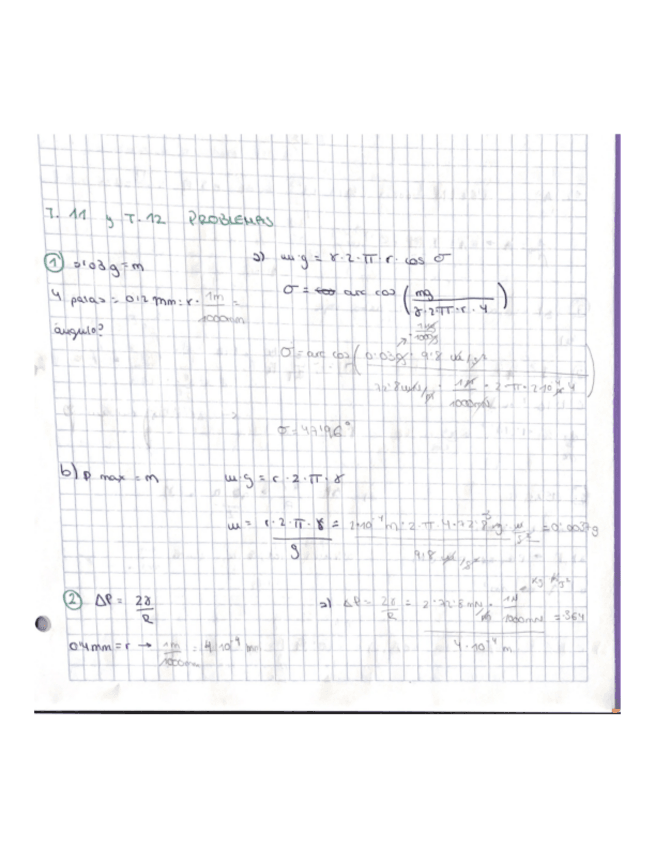 T. 11 y T. 12 PROBLEMAS
① 0'03 g = m
4 patas = 0'2 mm = r · 1m / 1000mm =
ángulo?
a) m·g = γ·2·π·r·cos σ
σ = arc cos ( mg / γ·2π·r·4 )
· 1kg / 1000g
σ = arc cos ( 0'03g · 9'8 m/s² / 72'8 mN/m · 1N / 1000mN · 2·π·2·10⁻⁴ · 4 )
σ = 47'96°
b) p max = m
m·g = r·2·π·γ
m = r·2·π·γ / g = 2·10⁻⁴ m·2·π·4·72'8 / 9'8 m/s² = 0'0037g
② ΔP = 2γ / R
0'4mm = r → 1m / 1000mm = 4·10⁻⁴ m
a) ΔP = 2γ / R = 2·72'8 mN/m · 1N / 1000mN / 4·10⁻⁴ m = 364